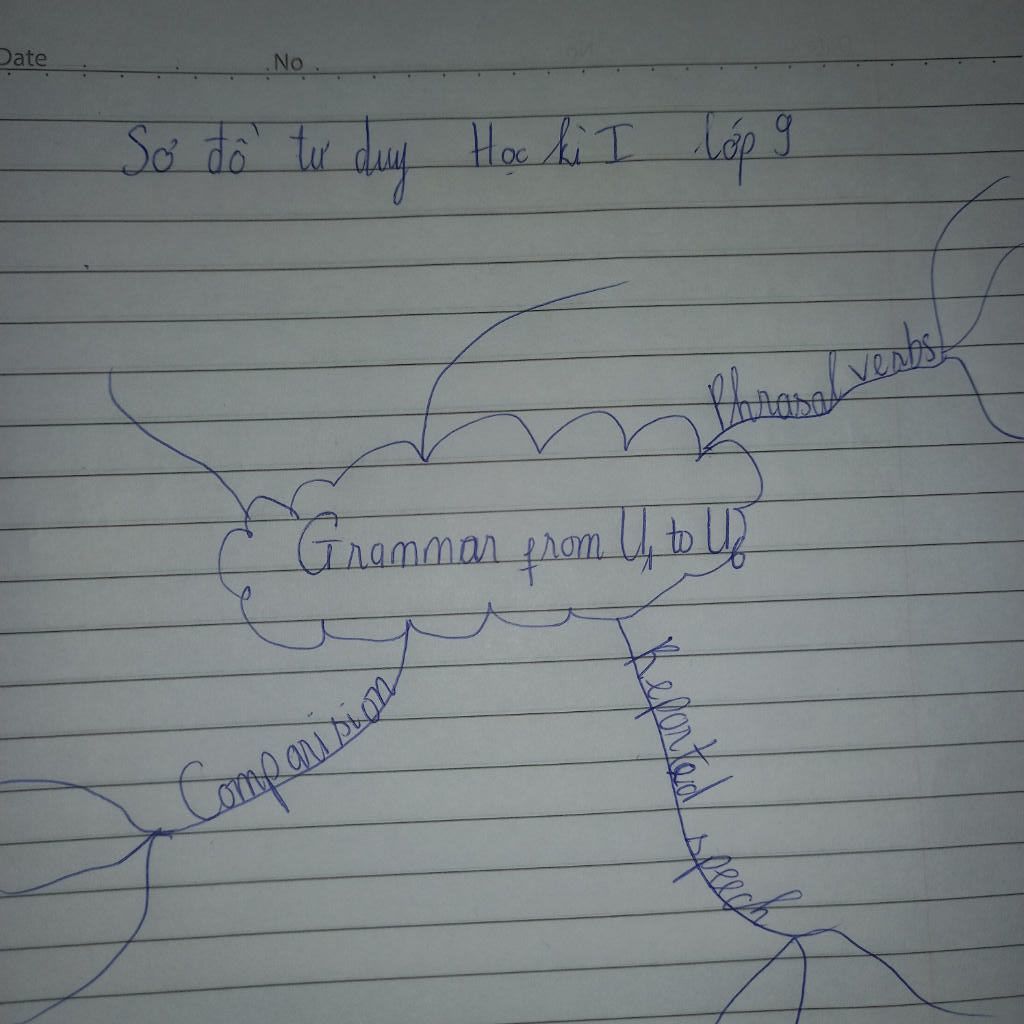 Date No
Sơ đồ tư duy Học kì I lớp 9
Phrasal verbs
Grammar from U1 to U6
Comparision
Reported speech